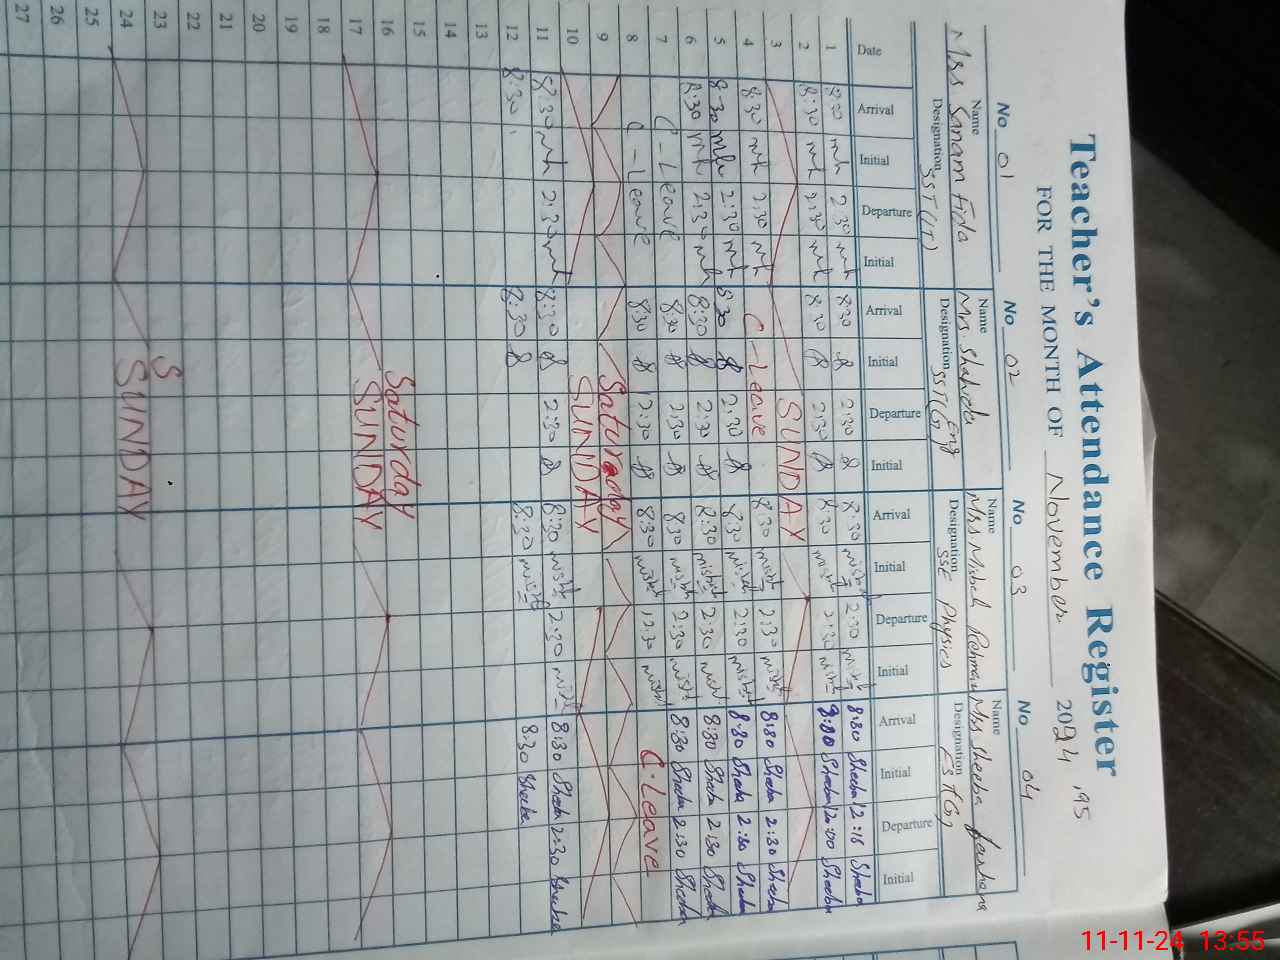 Teacher's Attendance Register
FOR THE MONTH OF November 2024
No 01 No 02 No 03 No 04
Name Name Name Name
Mrs Sanam Fida Mrs. Shahida Miss Misbah Rehman Mrs Sheeba
Designation SST (IT) Designation SST(G) Eng Designation SSE Physics Designation EST(G)
Date Arrival Initial Departure Initial Arrival Initial Departure Initial Arrival Initial Departure Initial Arrival Initial Departure Initial
1 8:30 2:30 8:30 2:30 8:30 misbah 2:30 misbah 8:30 Sheeba 12:15 Sheeba
2 8:30 2:30 8:30 2:30 8:30 misbah 2:30 misbah 8:00 Sheeba 12:00 Sheeba
3 SUNDAY
4 8:30 2:30 C-Leave 8:30 misbah 2:30 misbah 8:30 Sheeba 2:30 Sheeba
5 8:30 2:30 8:30 2:30 8:30 misbah 2:30 misbah 8:30 Sheeba 2:30 Sheeba
6 8:30 2:30 8:30 2:30 8:30 misbah 2:30 misbah 8:30 Sheeba 2:30 Sheeba
7 C-Leave 8:30 2:30 8:30 misbah 2:30 misbah 8:30 Sheeba 2:30 Sheeba
8 C-Leave 8:30 12:30 8:30 misbah 12:30 misbah C-Leave
9 Saturday
10 SUNDAY
11 8:30 2:30 8:30 2:30 8:30 misbah 2:30 8:30 Sheeba 2:30 Sheeba
12 8:30 8:30 8:30 misbah 8:30 Sheeba
13
14
15
16 Saturday
17 SUNDAY
18
19
20
21
22
23 S
24 SUNDAY
25
26
27
11-11-24 13:55